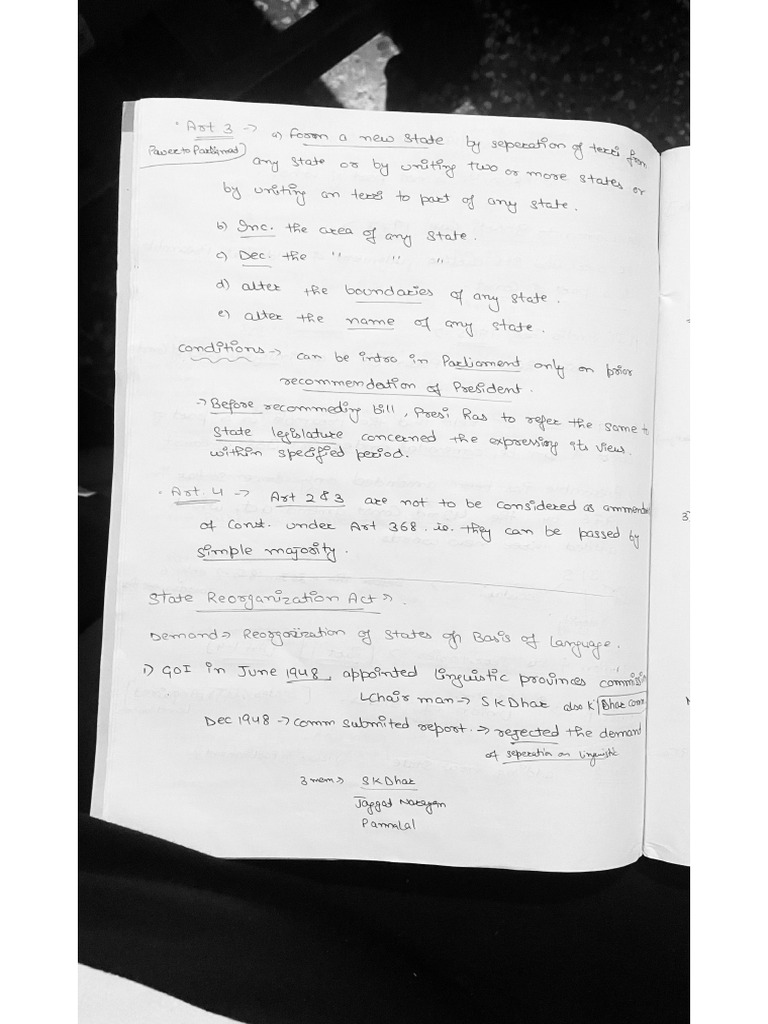 • Art 3 → a) Form a new state by seperation of terri from
(Power to Parliament)
any state or by uniting two or more states or
by uniting an terri to part of any state.
b) Inc. the area of any state.
c) Dec. the " " "
d) alter the boundaries of any state.
e) alter the name of any state.
Conditions → can be intro in Parliament only on prior
recommendation of President.
→ Before recommeding bill, Presi has to refer the same to
state legislature concerned the expressing its views
within specified period.
• Art. 4 → Art 2 & 3 are not to be considered as ammendm
of Const. under Art 368. ie. they can be passed by
simple majority.
State Reorganization Act →.
Demand → Reorganization of States on Basis of Language.
1) GOI in June 1948, appointed linguistic provinces commissin
L Chair man → S K Dhar also K/ Dhar Comm
Dec 1948 → comm submited report. → rejected the demand
of seperation on linguistic
3 mem → S K Dhar
Jaggat Narayan
Pannalal
3)